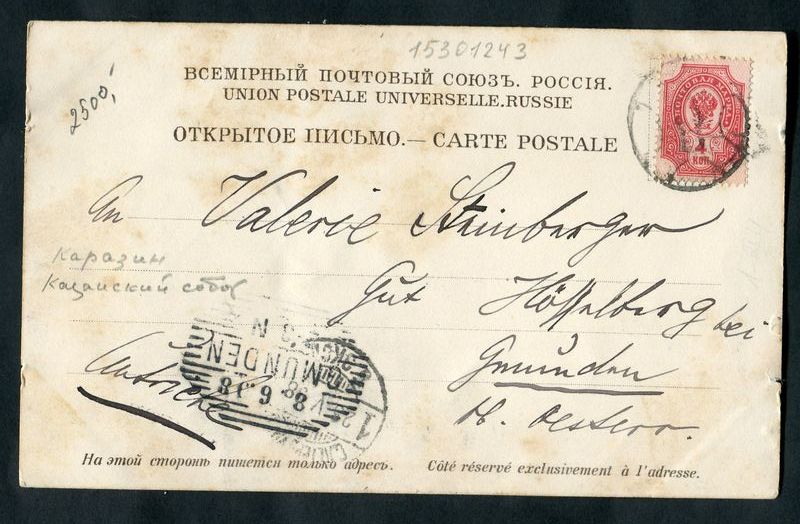 15301243
2500,
ВСЕМІРНЫЙ ПОЧТОВЫЙ СОЮЗЪ. РОССІЯ.
UNION POSTALE UNIVERSELLE. RUSSIE
ОТКРЫТОЕ ПИСЬМО.— CARTE POSTALE
ПОЧТОВАЯ МАРКА
КОП
An Valerie Steinberger
Каразин
Казанский собор
Gut Hösselberg bei
Gmünden
Ob. Oesterr.
Autriche
MUNDEN
8 6 98
1
На этой сторонѣ пишется только адресъ.
Côté réservé exclusivement à l'adresse.